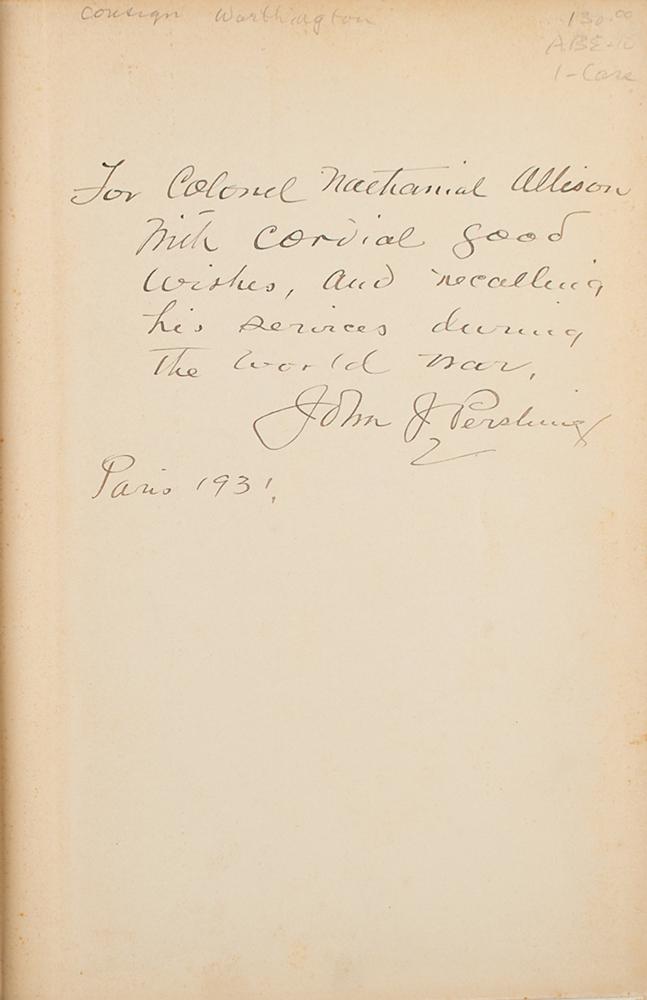 Consign Worthington
130.00
ABE-10
1-Case
For Colonel Nathanial Allison
With cordial good
wishes, and recalling
his services during
the world war.
John J Pershing
Paris 1931.